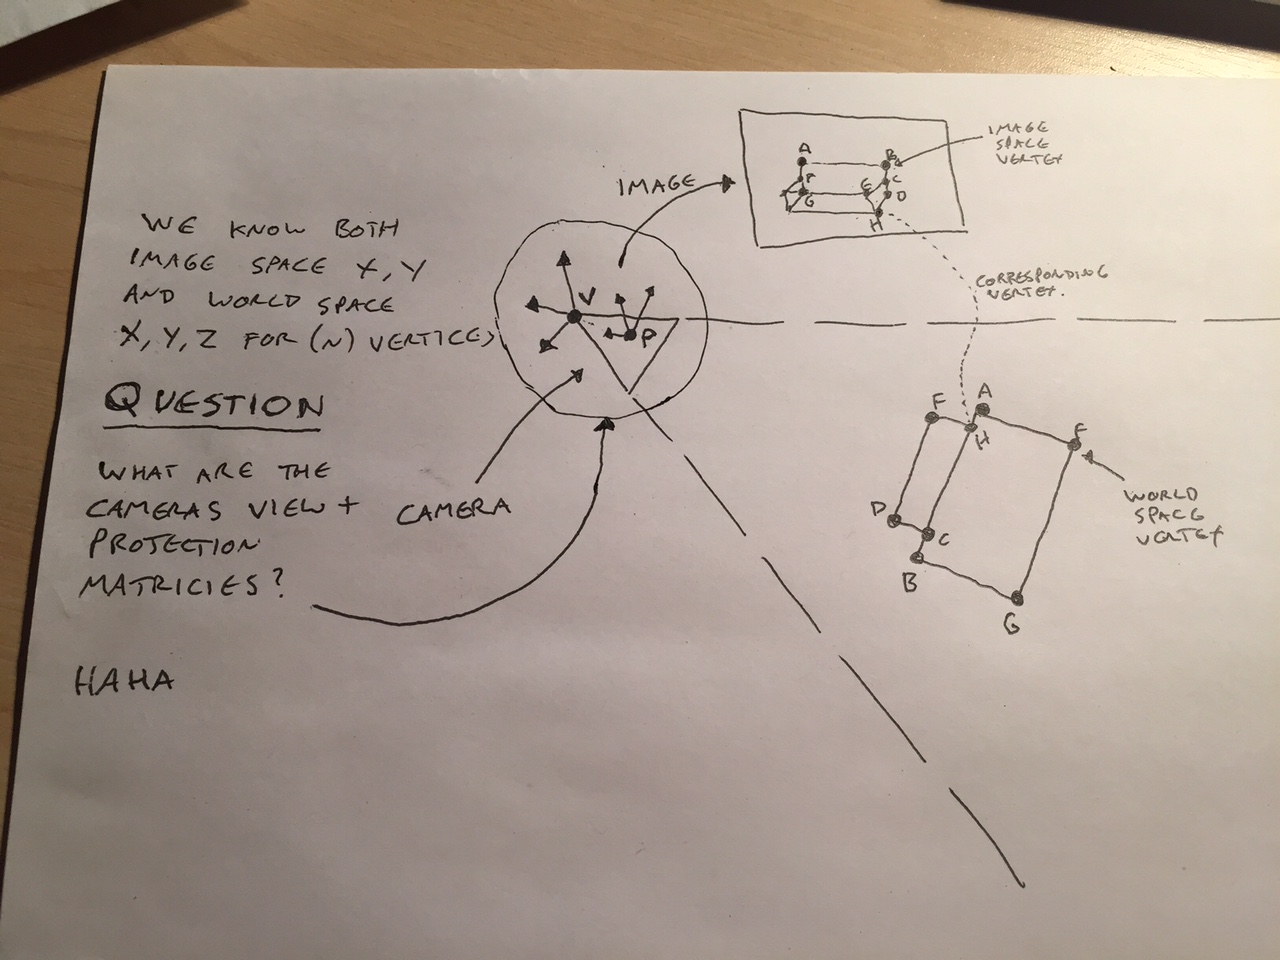 WE KNOW BOTH
IMAGE SPACE X, Y
AND WORLD SPACE
X, Y, Z FOR (N) VERTICES
QUESTION
WHAT ARE THE
CAMERAS VIEW +
PROTECTION
MATRICIES?
HAHA
CAMERA
V
P
IMAGE
A
B
F
E
C
G
D
H
IMAGE
SPACE
VERTEX
CORRESPONDING
VERTEX.
F
A
H
E
D
C
B
G
WORLD
SPACE
VERTEX